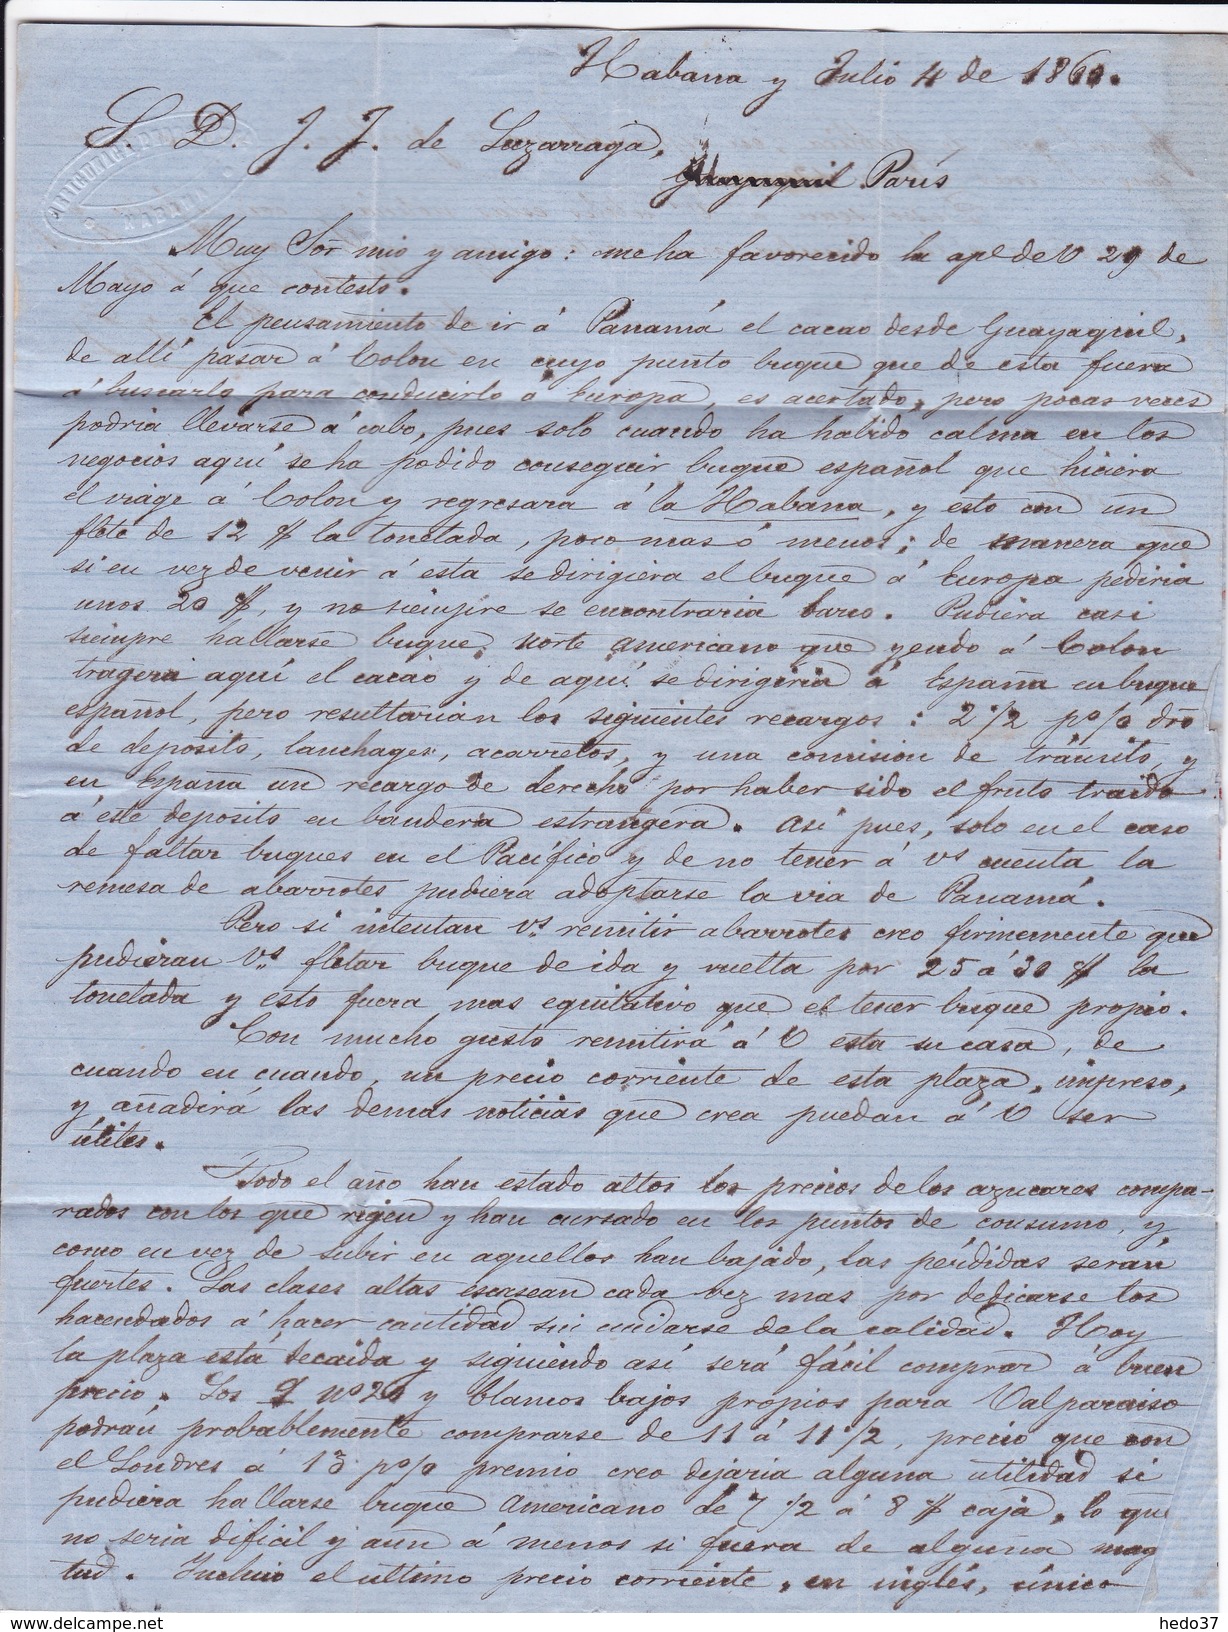 Habana y Julio 4 de 1860.
S. D. J. J. de Luzarraga,
Guayaquil París
Muy Sor mio y amigo: me ha favorecido la apl de V 29 de
Mayo á que contesto.
El pensamiento de ir á Panamá el cacao desde Guayaquil,
de allí pasar á Colon en cuyo punto buque que de esta fuera
á buscarlo para conducirlo a Europa, es acertado, pero pocas veces
podria llevarse á cabo, pues solo cuando ha habido calma en los
negocios aquí se ha podido conseguir buque español que hiciera
el viage á Colon y regresara á la Habana, y esto con un
flete de 12 $ la tonelada, poco mas ó menos; de manera que
si en vez de venir á esta se dirigiera el buque á Europa pediria
unos 20 $, y no siempre se encontraria barco. Pudiera casi
siempre hallarse buque norte americano que yendo á Colon
tragera aquí el cacao y de aquí se dirigiria á España en buque
español, pero resultarian los siguientes recargos: 2 1/2 p% dro
de deposito, lanchages, acarretos, y una comision de tránsito, y
en España un recargo de derecho por haber sido el fruto traido
á este deposito en bandera estrangera. Así pues, solo en el caso
de faltar buques en el Pacífico y de no tener á Vs cuenta la
remesa de abarrotes pudiera adoptarse la via de Panamá.
Pero si intentan Vs remitir abarrotes creo firmemente que
pudieran Vs fletar buque de ida y vuelta por 25 á 30 $ la
tonelada y esto fuera mas equitativo que el tener buque propio.
Con mucho gusto remitirá á V esta su casa, de
cuando en cuando, un precio corriente de esta plaza, impreso,
y añadirá las demas noticias que crea puedan á V ser
útiles.
Todo el año han estado altos los precios de los azucares compa-
rados con los que rigen y han cursado en los puntos de consumo, y,
como en vez de subir en aquellos han bajado, las pérdidas serán
fuertes. Las clases altas escasean cada vez mas por dedicarse los
hacendados á hacer cantidad sin cuidarse de la calidad. Hoy
la plaza está decaida y siguiendo así será fácil comprar á buen
precio. Los Q no 20 y blancos bajos propios para Valparaiso
podrán probablemente comprarse de 11 á 11 1/2, precio que con
el Londres á 13 p% premio creo dejaria alguna utilidad si
pudiera hallarse buque Americano de 7 1/2 á 8 $ caja, lo que
no seria dificil y aun á menos si fuera de alguna mag
tud. Incluio el ultimo precio corriente, en inglés, único
www.delcampe.net
hedo37